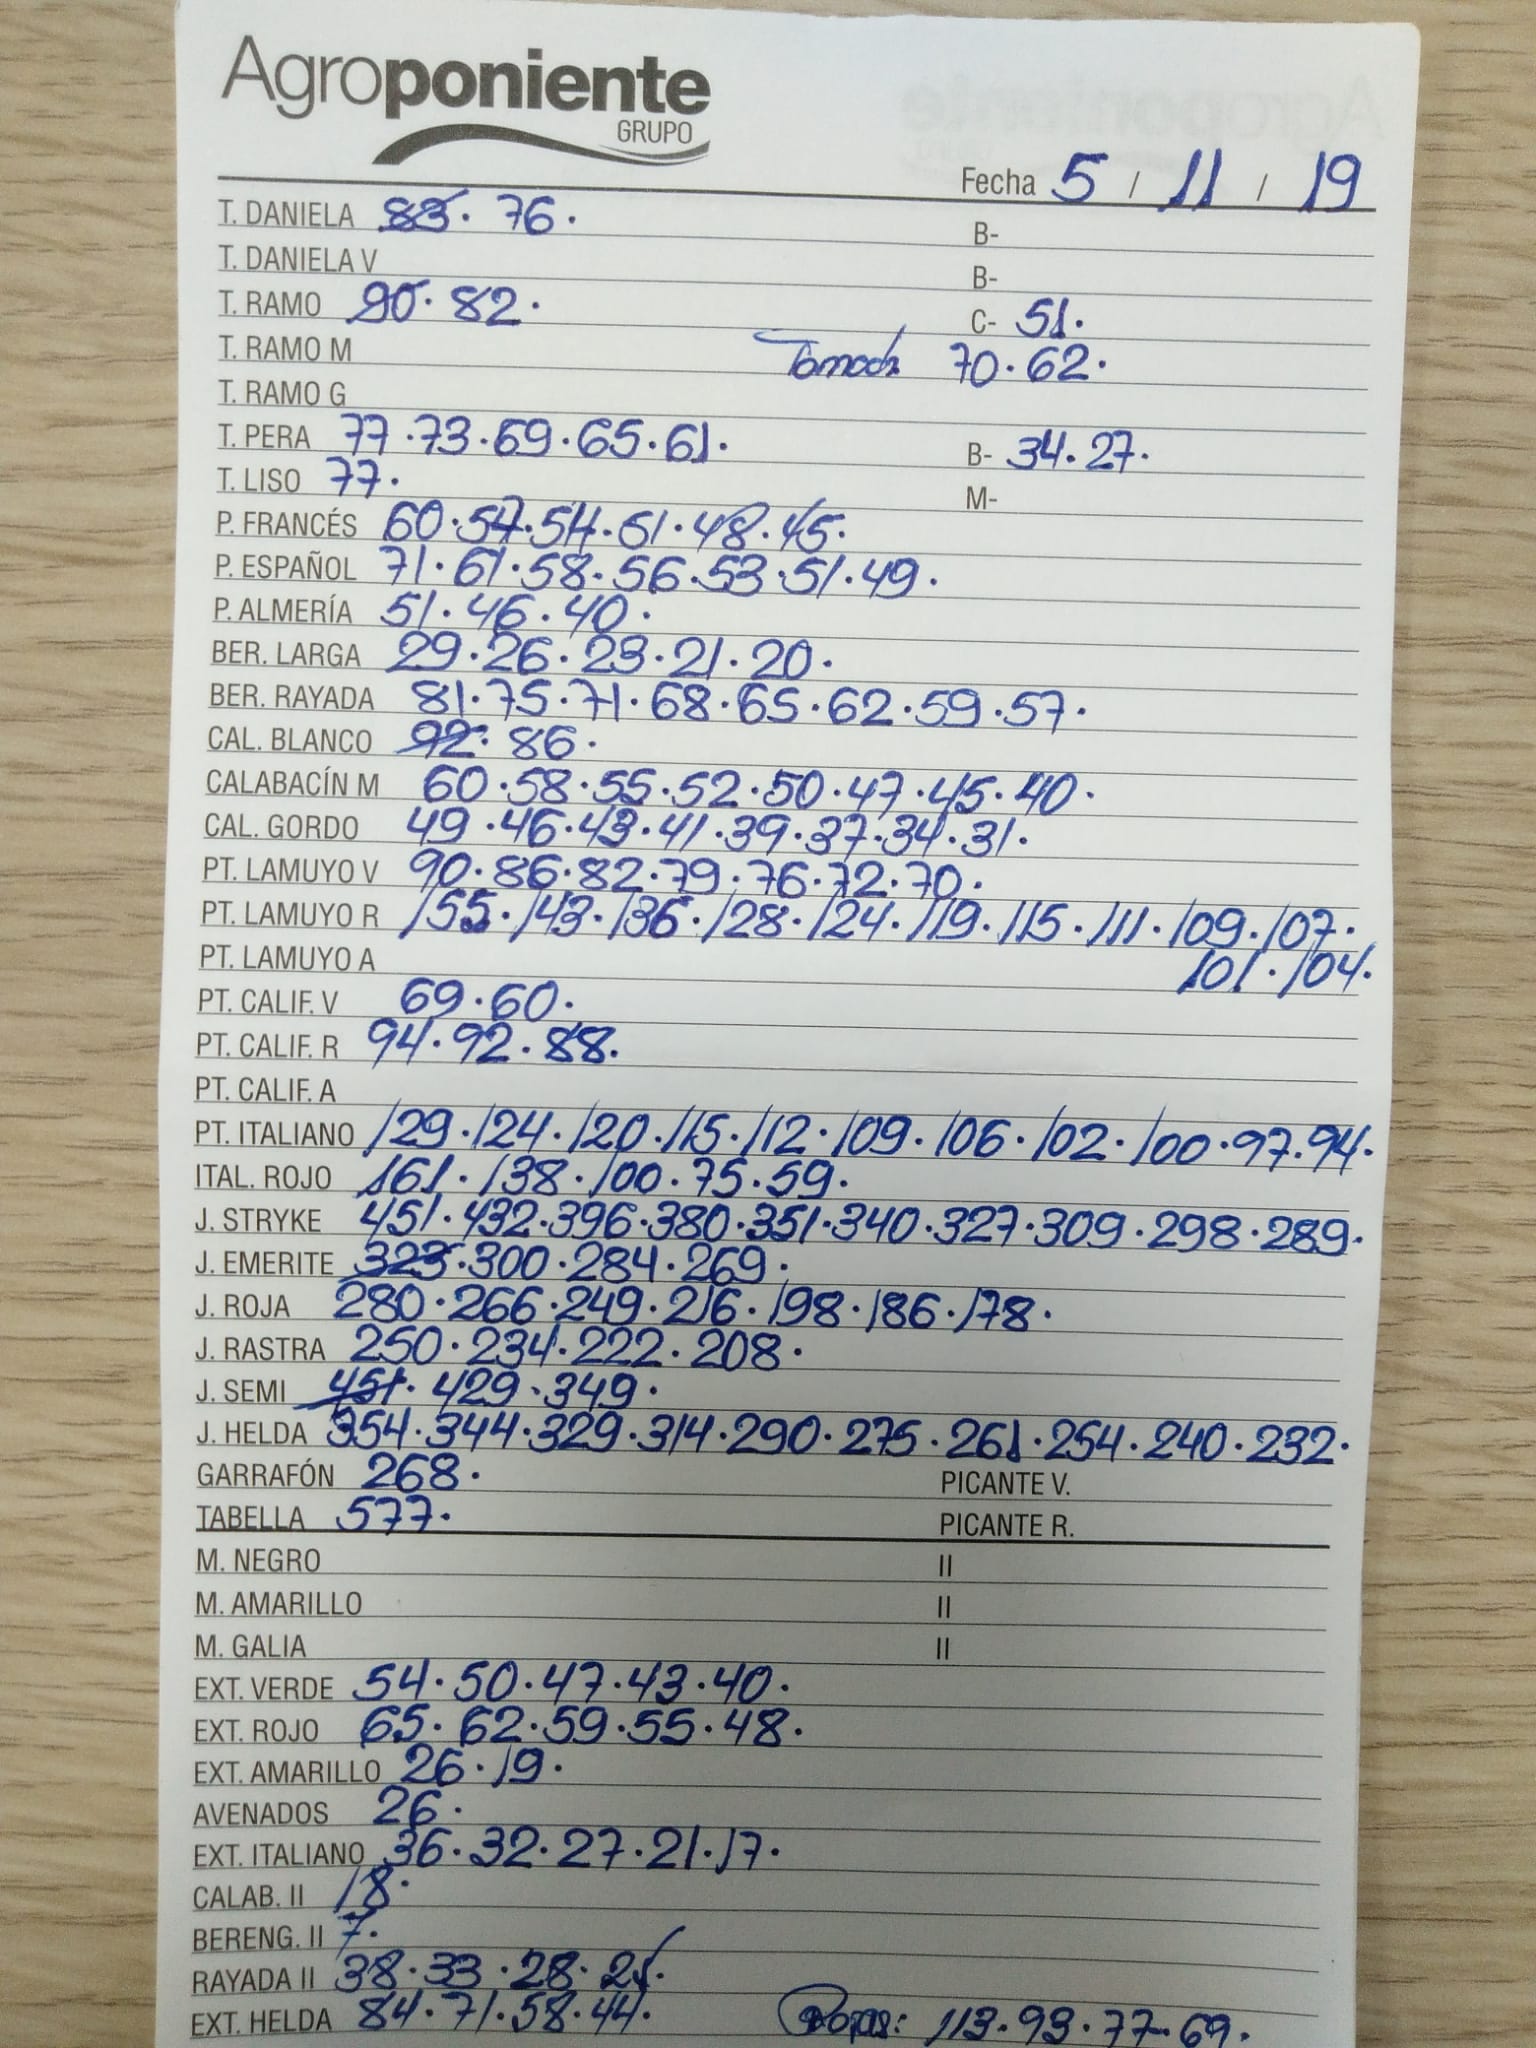 Agroponiente
GRUPO
Fecha 5 / 11 / 19
T. DANIELA 83. 76. B-
T. DANIELA V B-
T. RAMO 90. 82. C- 51.
T. RAMO M 70. 62.
T. RAMO G
T. PERA 77.73.69.65.61. B- 34.27.
T. LISO 77. M-
P. FRANCÉS 60.57.54.51.48.45.
P. ESPAÑOL 71.61.58.56.53.51.49.
P. ALMERÍA 51.46.40.
BER. LARGA 29.26.23.21.20.
BER. RAYADA 81.75.71.68.65.62.59.57.
CAL. BLANCO 92. 86.
CALABACÍN M 60.58.55.52.50.47.45.40.
CAL. GORDO 49.46.43.41.39.37.34.31.
PT. LAMUYO V 90.86.82.79.76.72.70.
PT. LAMUYO R 155.143.136.128.124.119.115.111.109.107.
PT. LAMUYO A 101.104.
PT. CALIF. V 69.60.
PT. CALIF. R 94.92.88.
PT. CALIF. A
PT. ITALIANO 129.124.120.115.112.109.106.102.100.97.94.
ITAL. ROJO 161.138.100.75.59.
J. STRYKE 451.432.396.380.351.340.327.309.298.289.
J. EMERITE 323.300.284.269.
J. ROJA 280.266.249.216.198.186.178.
J. RASTRA 250.234.222.208.
J. SEMI 451. 429.349.
J. HELDA 354.344.329.314.290.275.261.254.240.232.
GARRAFÓN 268. PICANTE V.
TABELLA 577. PICANTE R.
M. NEGRO II
M. AMARILLO II
M. GALIA II
EXT. VERDE 54.50.47.43.40.
EXT. ROJO 65.62.59.55.48.
EXT. AMARILLO 26.19.
AVENADOS 26.
EXT. ITALIANO 36.32.27.21.17.
CALAB. II 18.
BERENG. II 7.
RAYADA II 38.33.28.25.
EXT. HELDA 84.71.58.44. Rojas: 113.93.77.69.